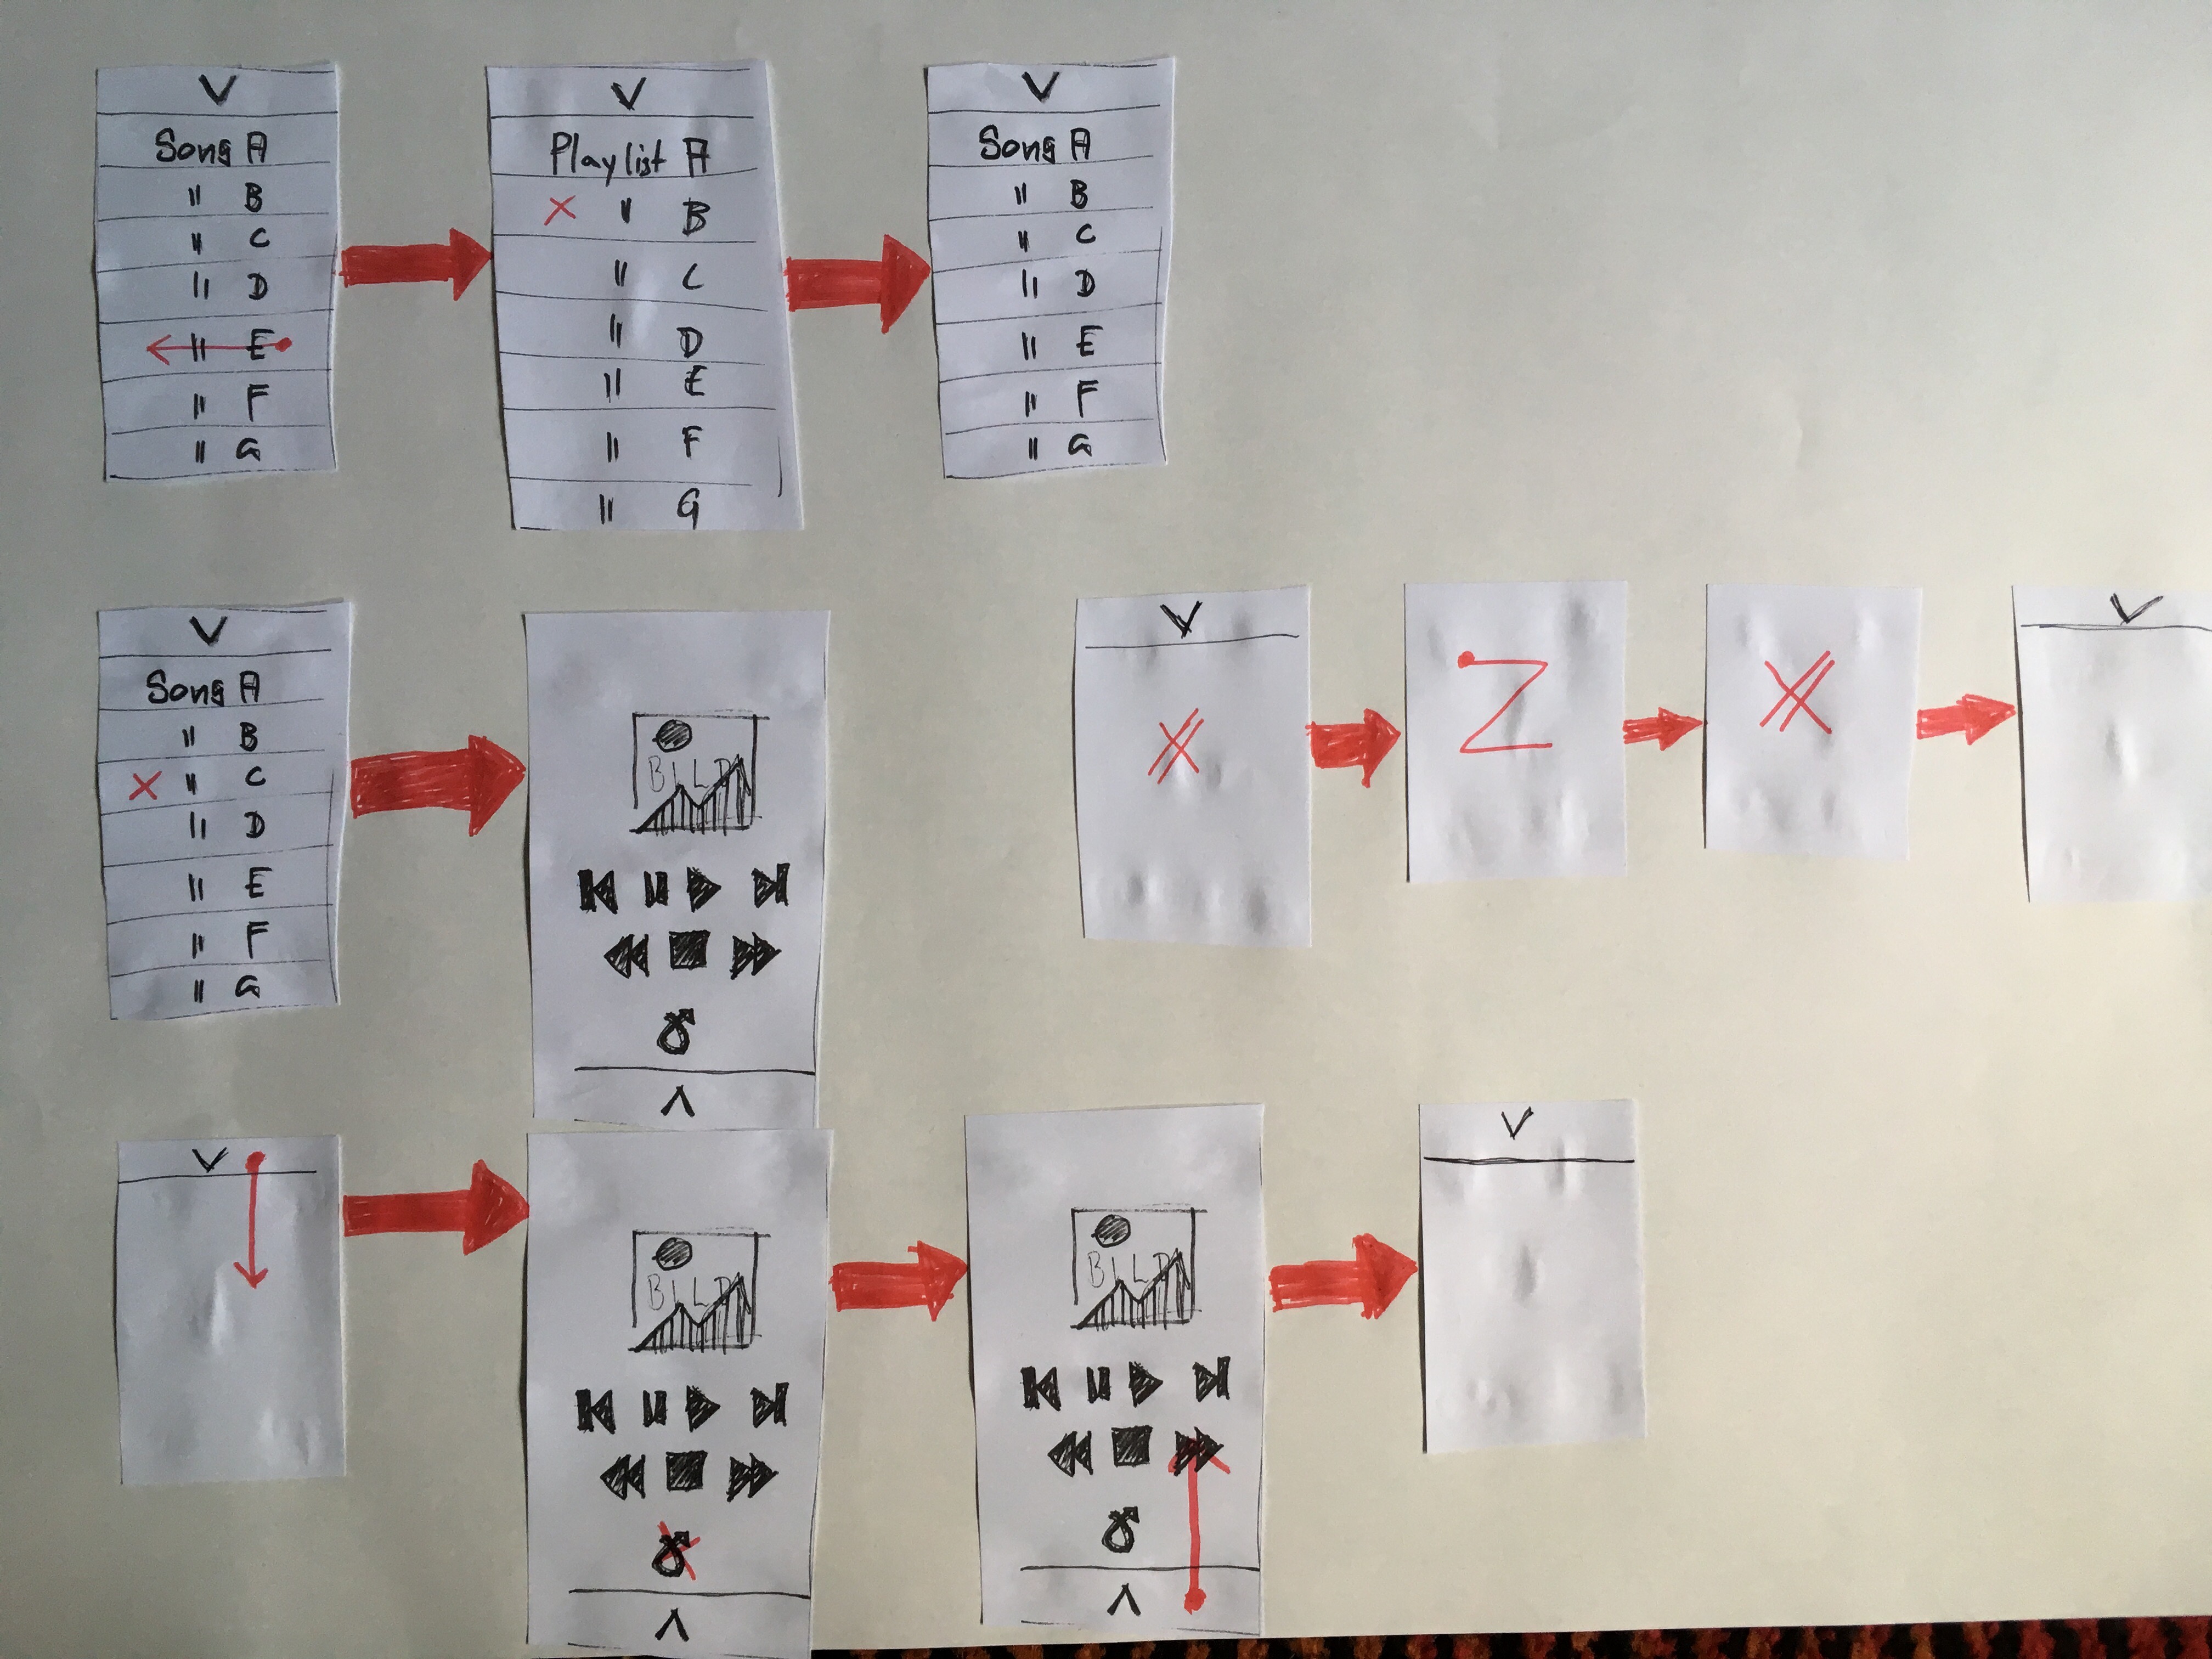 V
Song A
" B
" C
" D
" E
" F
" G
V
Playlist A
" B
" C
" D
" E
" F
" G
V
Song A
" B
" C
" D
" E
" F
" G
V
Song A
" B
X " C
" D
" E
" F
" G
BILD
V
Z
V
V
BILD
BILD
V